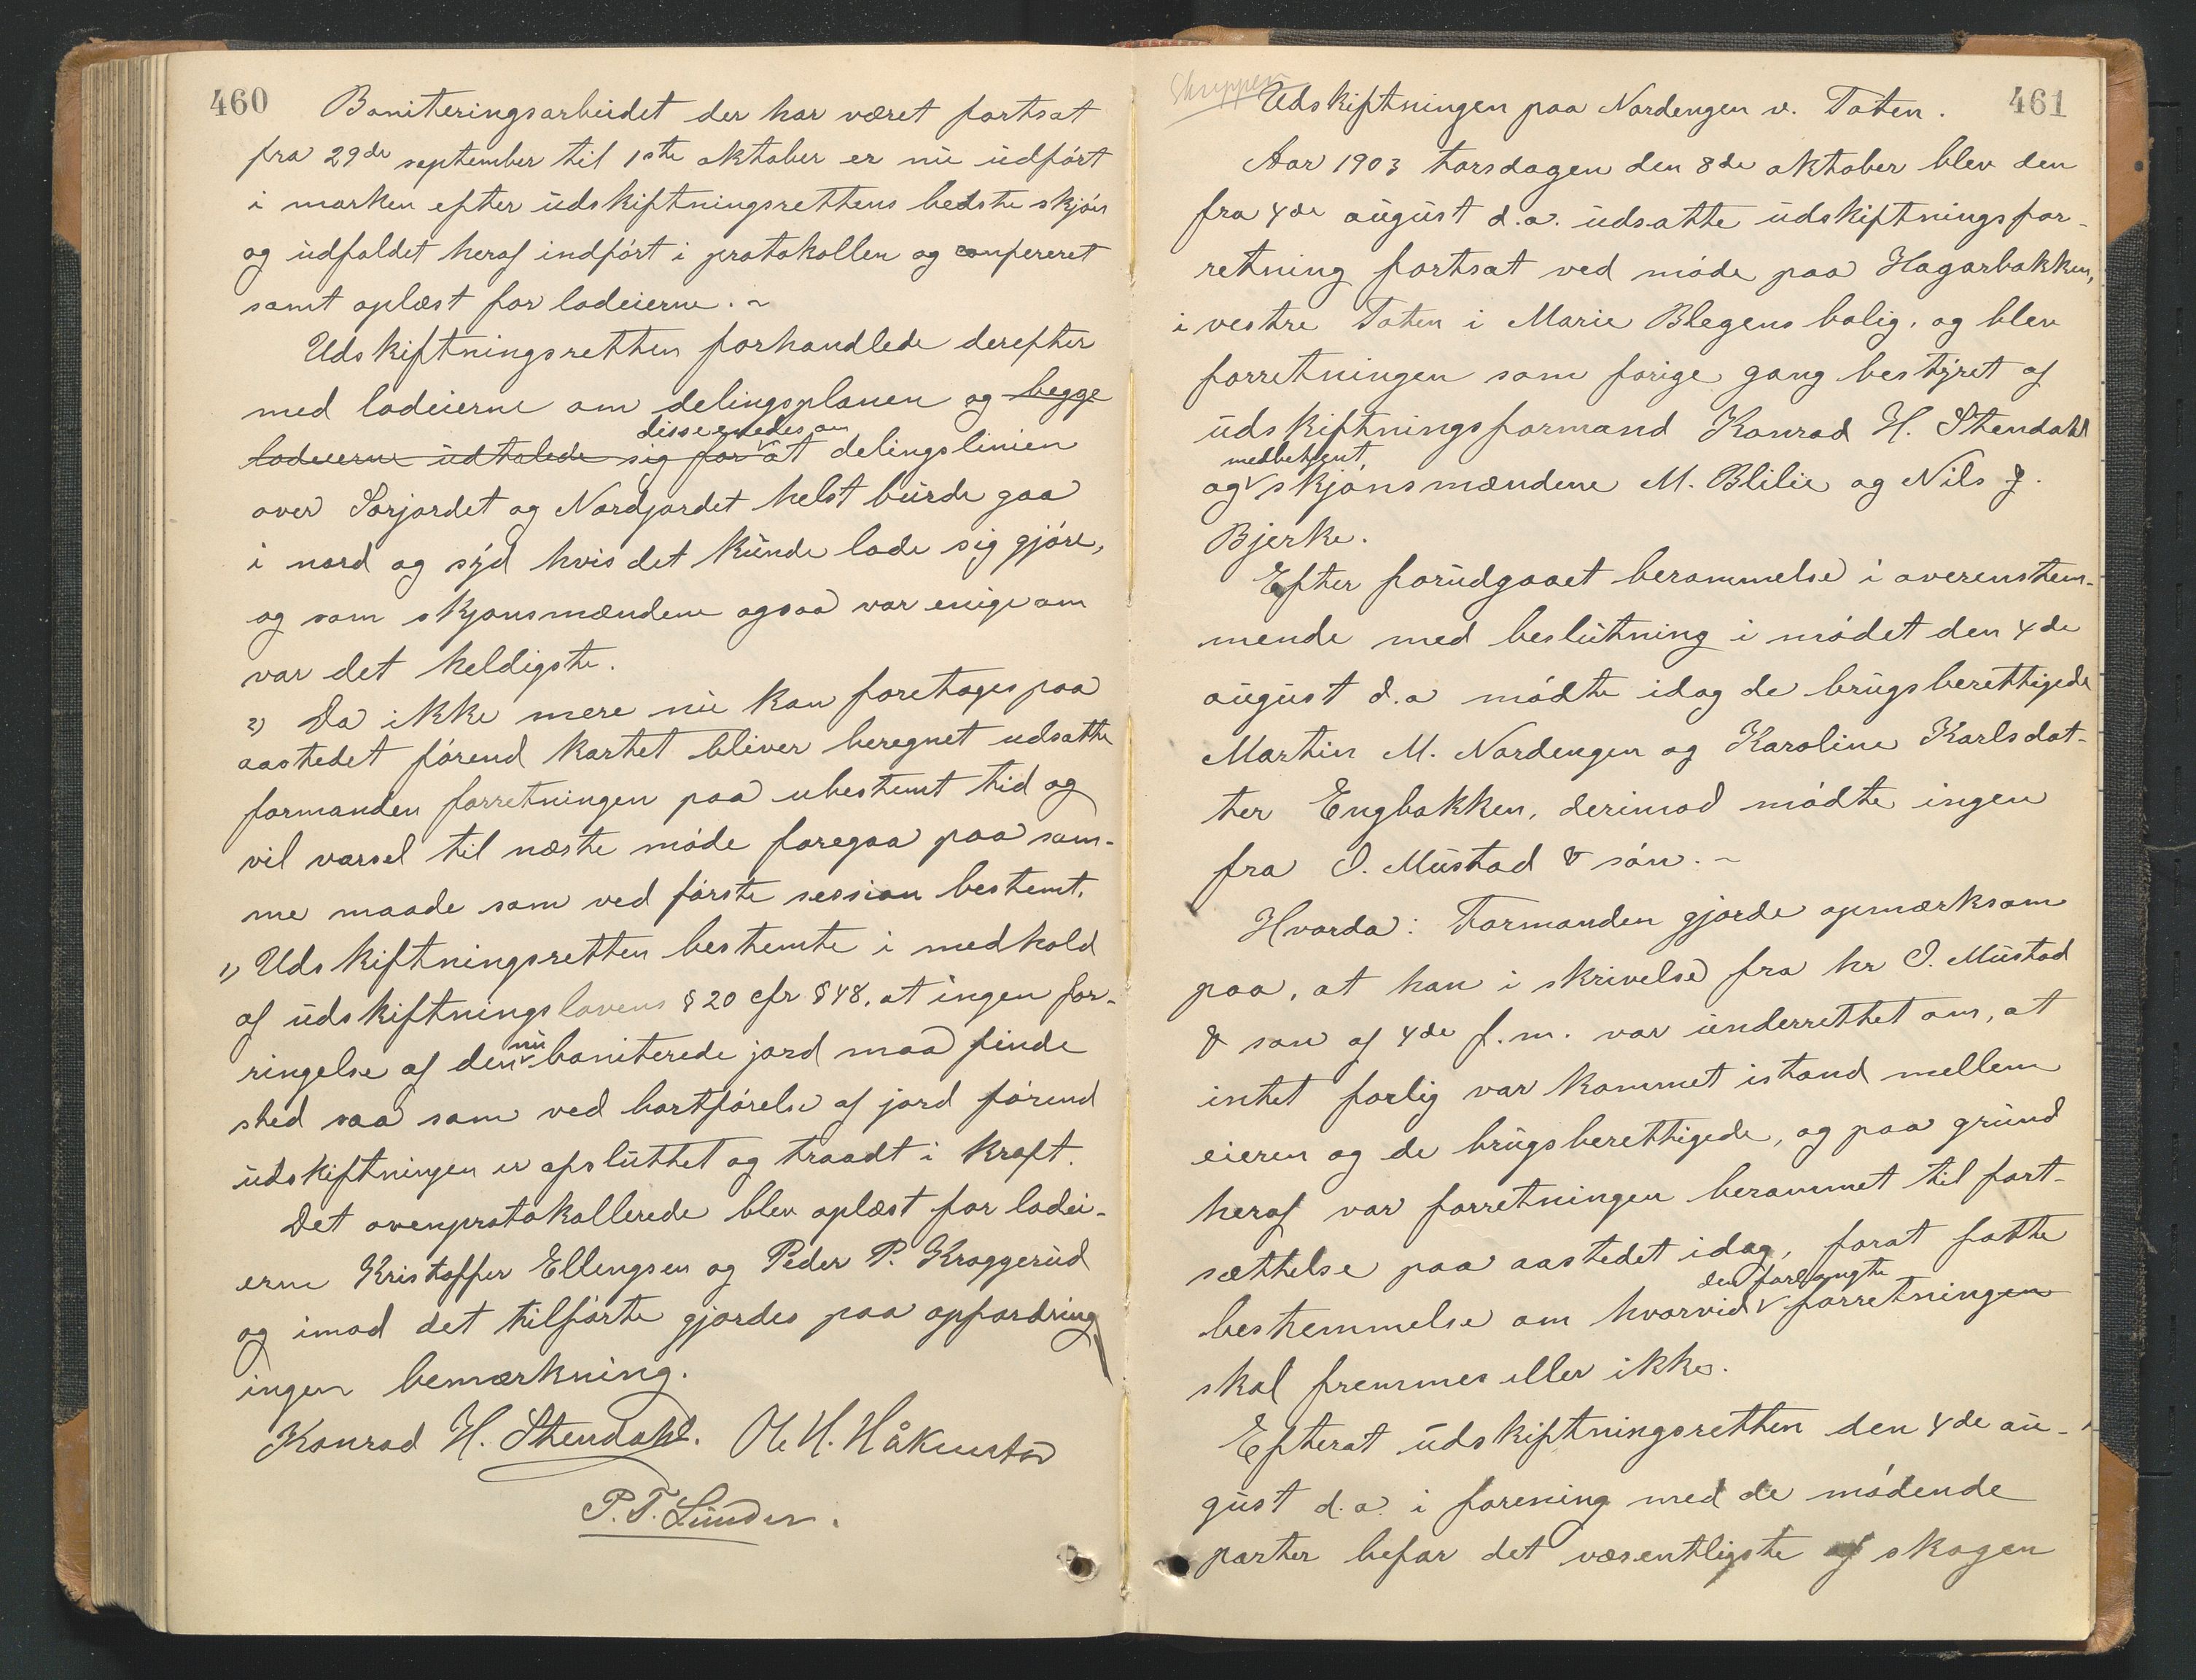 460
Boniteringsarbeidet der har været fortsat
fra 29de september til 1ste oktober er nu udført
i marken efter udskiftningsrettens bedste skjøn
og udfaldet heraf indført i protokollen og confereret
samt oplæst for lodeierne. ~
Udskiftningsretten forhandlede derefter
med lodeierne om delingsplanen og begge
disse enedes om
lodeierne udtalede sig for at delingslinien
over Sørjordet og Nordjordet helst burde gaa
i nord og syd hvis det kunde lade sig gjøre,
og som skjønsmændene ogsaa var enige om
var det heldigste.
2) Da ikke mere nu kan foretages paa
aastedet førend kartet bliver beregnet udsatte
formanden forretningen paa ubestemt tid og
vil varsel til næste møde foregaa paa sam-
me maade som ved første session bestemt.
1) Udskiftningsretten bestemte i medhold
af udskiftningslovens § 20 cfr § 48, at ingen for-
nu
ringelse af den boniterede jord maa finde
sted saa som ved bortførelse af jord førend
udskiftningen er afsluttet og traadt i kraft.
Det ovenprotokollerede blev oplæst for lodei-
erne Kristoffer Ellengsen og Peder P. Kraggerud
og imod det tilførte gjordes paa opfordring
ingen bemærkning.
Konrad H. Stendahl. Ole H. Håkenstad
P. T. Lunder.
Skuppen
461
Udskiftningen paa Nordengen v. Toten.
Aar 1903 torsdagen den 8de oktober blev den
fra 4de august d.a. udsatte udskiftningsfor-
retning fortsat ved møde paa Hagarbakken,
i vestre Toten i Marie Blegens bolig, og blev
forretningen som forige gang bestyret af
udskiftningsformand Konrad H. Stendahl
medbetjent,
og skjønsmændene M. Blilie og Nils J.
Bjerke.
Efter forudgaaet berammelse i overenstem-
mende med beslutning i mødet den 4de
august d.a mødte idag de brugsberettigede
Martin M. Nordengen og Karoline Karlsdat-
ter Engbakken, derimod mødte ingen
fra O. Mustad & søn. ~
Hvorda: Formanden gjorde opmærksom
paa, at han i skrivelse fra hr O. Mustad
& søn af 4de f.m. var underrettet om, at
intet forlig var kommet istand mellem
eieren og de brugsberettigede, og paa grund
heraf var forretningen berammet til fort-
sættelse paa aastedet idag, forat fatte
den forlangte
bestemmelse om hvorvid forretningen
skal fremmes eller ikke.
Efterat udskiftningsretten den 4de au-
gust d.a. i forening med de mødende
parter befar det væsentligste af skogen